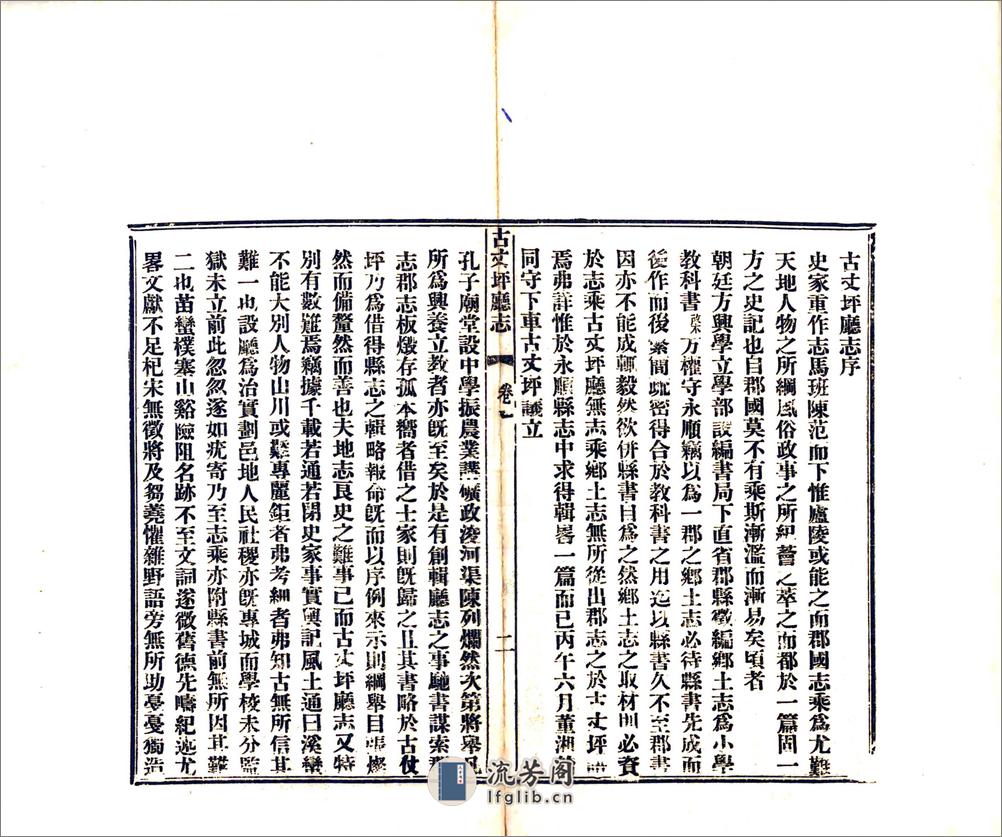 古丈坪廳志序
史家重作志馬班陳范而下惟廬陵或能之而郡國志乘爲尤難
天地人物之所綱風俗政事之所紀薈之萃之而都於一篇固一
方之史記也自郡國莫不有乘斯漸濫而漸易矣頃者
朝廷方興學立學部設編書局下直省郡縣徵編鄉土志爲小學
教科書 方權守永順竊以爲一郡之鄉土志必待縣書先成而
後作而後繁簡疏密得合於教科書之用迄以縣書久不至郡書
因亦不能成輒毅然欲併縣書自爲之然鄉土志之取材則必資
於志乘古丈坪廳無志乘鄉土志無所從出郡志之於古丈坪
焉弗詳惟於永順縣志中求得輯畧一篇而已丙午六月董湘
同守下車古丈坪議立
古丈坪廳志
卷
二
孔子廟堂設中學振農業講礦政浚河渠陳列爛然次第將舉凡
所爲興養立教者亦旣至矣於是有創輯廳志之事馳書謀索郡
志郡志板燬存孤本嚮者借之士家則旣歸之且其書略於古仗
坪乃爲借得縣志之輯略報命旣而以序例來示則綱舉目張燦
然而備釐然而善也夫地志良史之難事已而古丈坪廳志又特
別有數難焉竊據千載若通若閉史家事實輿記風土通曰溪蠻
不能大別人物山川或難專麗鉅者弗考細者弗知古無所信其
難一也設廳爲治實劃邑地人民社稷亦旣專城而學校未分監
獄未立前此忽忽遂如疣寄乃至志乘亦附縣書前無所因其難
二也苗蠻樸塞山谿險阻名跡不至文詞遂微舊德先疇紀迹尤
畧文獻不足杞宋無徵將及芻蕘懼雜野語旁無所助戞戞獨造
流芳阁
lfglib.cn